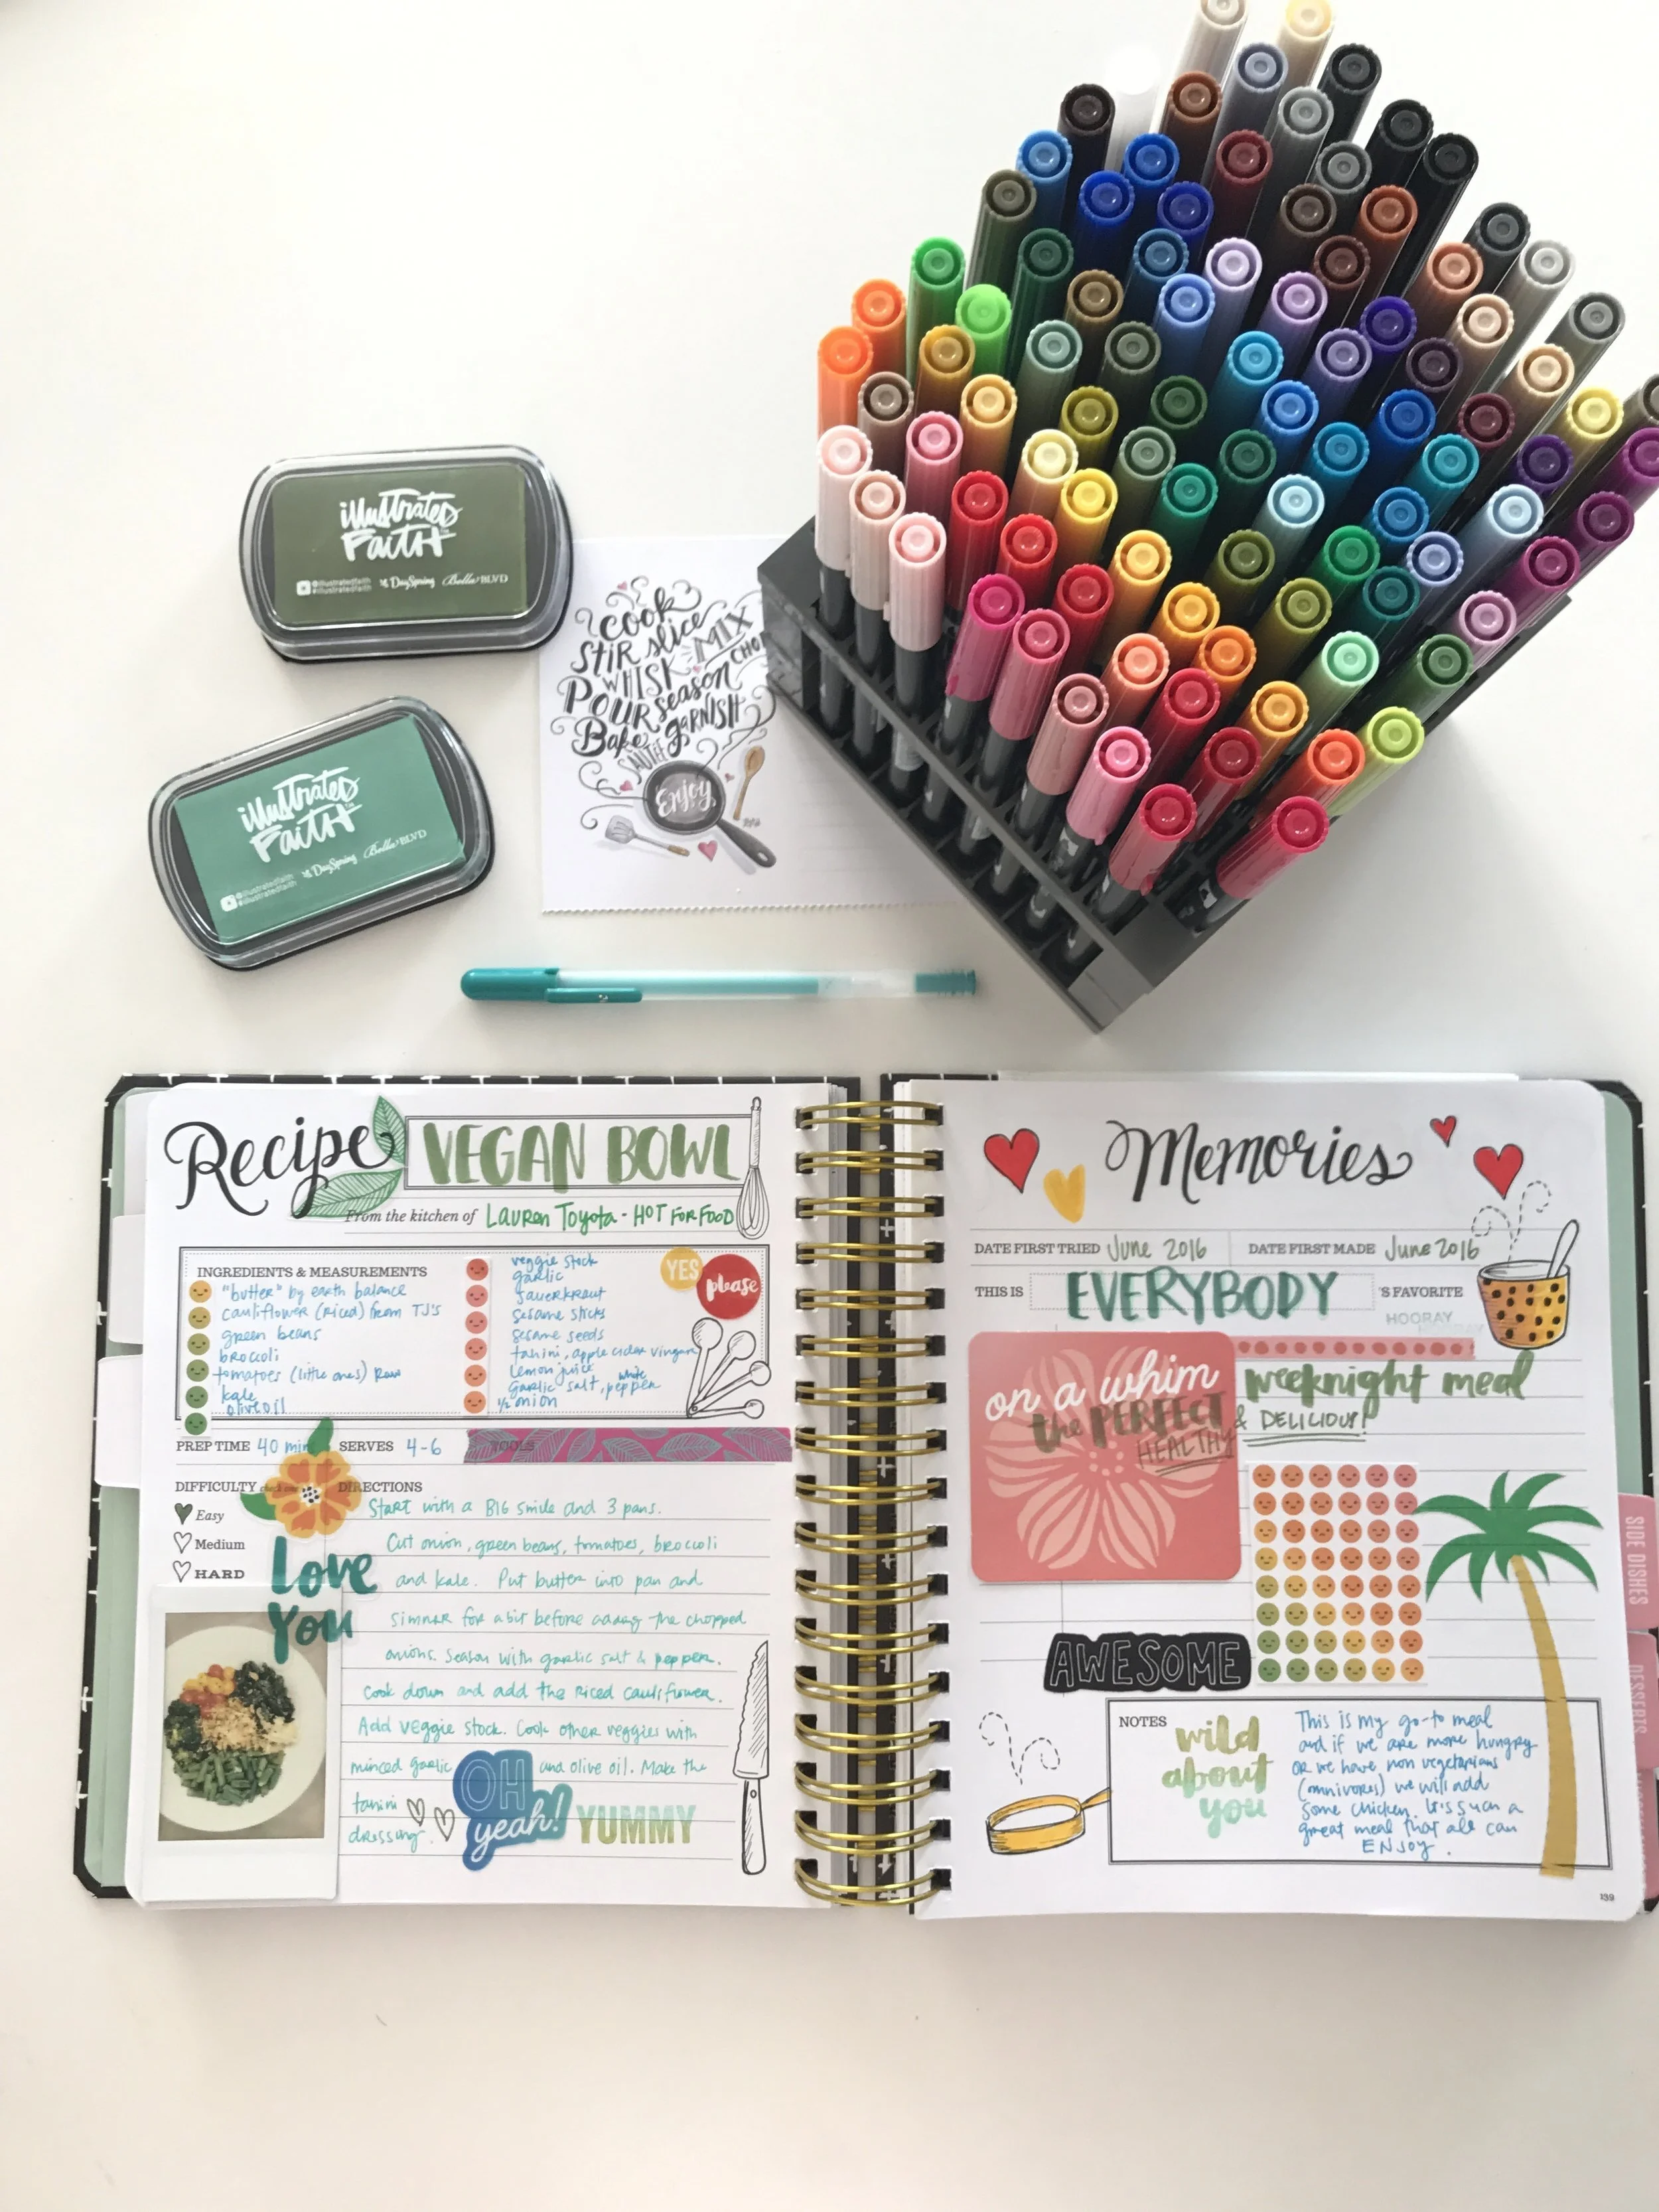 illustrated
Faith
@illustratedfaith
#illustratedfaith
DaySpring
Bella BLVD
illustrated
Faith
@illustratedfaith
#illustratedfaith
DaySpring
Bella BLVD
cook
STIR slice MIX
WHISK CHOP
POUR season
Bake garnish
SAUTÉ
Enjoy
Recipe VEGAN BOWL
From the kitchen of Lauren Toyota - HOT FOR FOOD
INGREDIENTS & MEASUREMENTS
"butter" by earth balance
cauliflower (riced) from TJ's
green beans
broccoli
tomatoes (little ones) Raw
kale
olive oil
veggie stock
garlic
sauerkraut
sesame sticks
sesame seeds
tahini, apple cider vingar
lemon juice
garlic salt, white pepper
1/2 onion
YES
please
PREP TIME 40 min SERVES 4-6 TOOLS
DIFFICULTY check one DIRECTIONS
Easy
Medium
HARD
Love
You
Start with a BIG smile and 3 pans.
Cut onion, green beans, tomatoes, broccoli
and kale. Put butter into pan and
simner for a bit before adding the chopped
onions. Season with garlic salt & pepper.
Cook down and add the riced cauliflower.
Add veggie stock. Cook other veggies with
minced garlic and olive oil. Make the
tahini
dressing.
OH
yeah!
YUMMY
Memories
DATE FIRST TRIED June 2016 DATE FIRST MADE June 2016
THIS IS EVERYBODY 'S FAVORITE
HOORAY
on a whim
the PERFECT
HEALTHY
weeknight meal
& DELICIOUS!
AWESOME
NOTES
wild
about
you
This is my go-to meal
and if we are more hungry
or we have non vegetarians
(omnivores) we will add
some chicken. It's such a
great meal that all can
ENJOY.
139
SIDE DISHES
DESSERTS